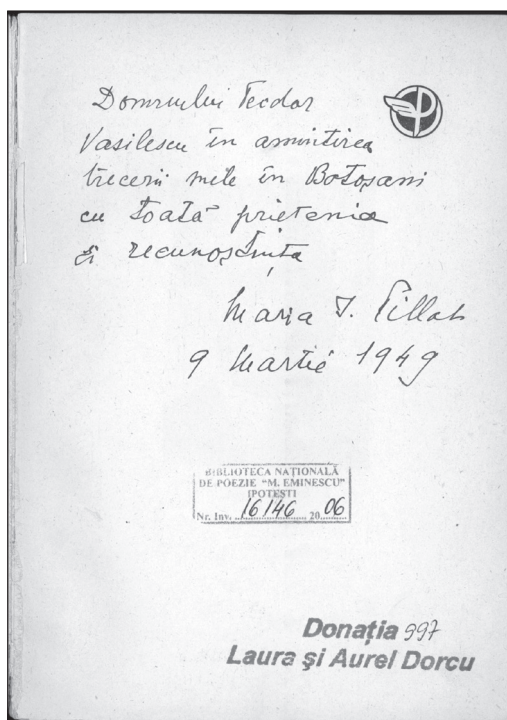 Domnului Teodor
Vasilescu în amintirea
trecerii mele în Botoşani
cu toată prietenia
şi recunoştinţa
Maria I. Pillat
9 Martie 1949
BIBLIOTECA NAŢIONALĂ
DE POEZIE "M. EMINESCU"
IPOTEŞTI
Nr. Inv. 16146 20 06
Donaţia 997
Laura şi Aurel Dorcu